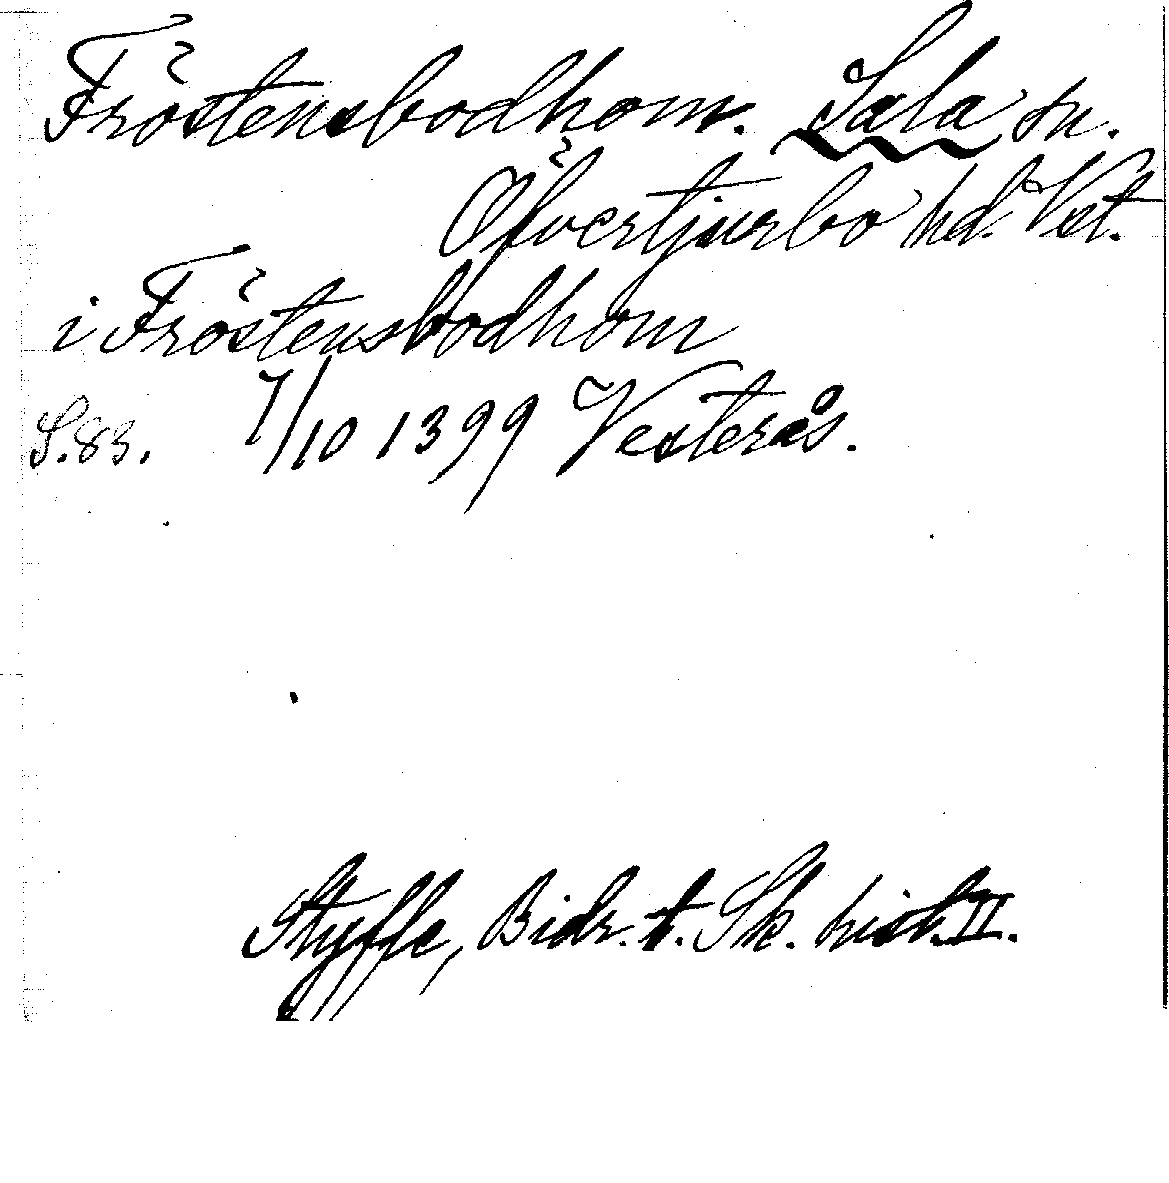 Fröstensbodhom. Sala sn.
Öfvertjurbo hd. Vst.
i Fröstensbodhom
S. 83. 7/10 1399 Vesterås.
Styffe, Bidr. t. Sk. hist. II.